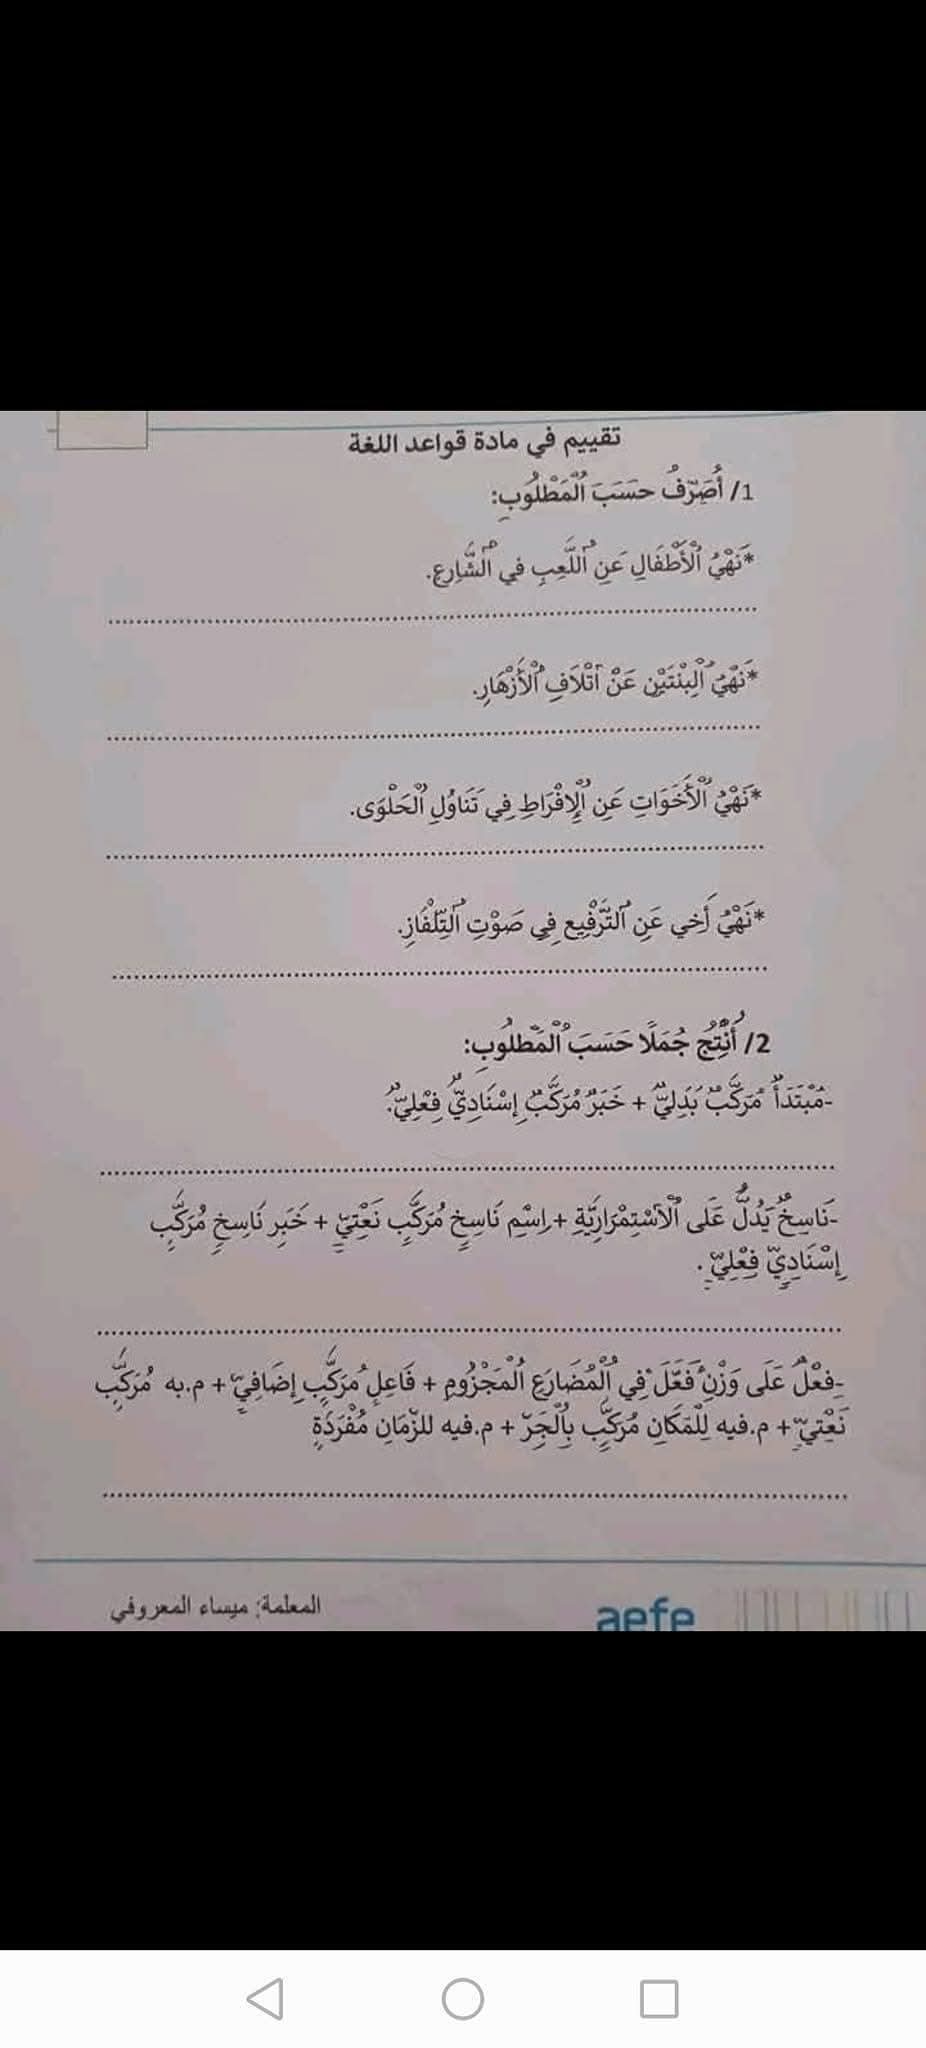 تقييم في مادة قواعد اللغة
1/ أُصَرِّفُ حَسَبَ ٱلْمَطْلُوبِ:
*نَهْيُ ٱلْأَطْفَالِ عَنِ ٱللَّعِبِ فِي ٱلشَّارِعِ.
*نَهْيُ ٱلْبِنْتَيْنِ عَنْ اتْلَافِ ٱلْأَزْهَارِ.
*نَهْيُ ٱلْأَخَوَاتِ عَنِ ٱلْإِفْرَاطِ فِي تَنَاوُلِ ٱلْحَلْوَى.
*نَهْيُ أَخِي عَنِ ٱلتَّرْفِيعِ فِي صَوْتِ ٱلتِّلْفَازِ.
2/ أُنْتِجُ جُمَلًا حَسَبَ ٱلْمَطْلُوبِ:
-مُبْتَدَأٌ مُرَكَّبٌ بَدَلِيٌّ + خَبَرٌ مُرَكَّبٌ إِسْنَادِيٌّ فِعْلِيٌّ.
-نَاسِخٌ يَدُلُّ عَلَى ٱلْاسْتِمْرَارِيَّةِ + اِسْمِ نَاسِخٍ مُرَكَّبٍ نَعْتِيٍّ + خَبَرِ نَاسِخٍ مُرَكَّبٍ
إِسْنَادِيٍّ فِعْلِيٍّ .
-فِعْلٌ عَلَى وَزْنِ فَعَّلَ فِي ٱلْمُضَارِعِ ٱلْمَجْزُومِ + فَاعِلٍ مُرَكَّبٍ إِضَافِيٍّ + م.به مُرَكَّبٍ
نَعْتِيٍّ + م.فيه لِلْمَكَانِ مُرَكَّبٍ بِٱلْجَرِّ + م.فيه للزَّمَانِ مُفْرَدَةٍ
المعلمة: ميساء المعروفي
aefe